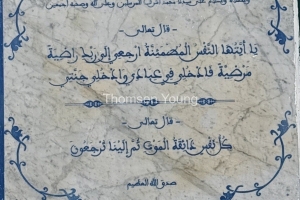 - قال تعالى -
يا أيتها النفس المطمئنة ارجعي إلى ربك راضية
مرضية فادخلي في عبادي وادخلي جنتي
Thomson Young
- قال تعالى -
كل نفس ذائقة الموت ثم إلينا ترجعون
صدق الله العظيم